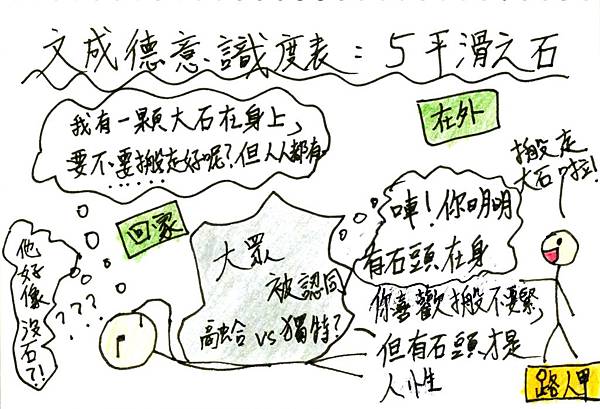 文成德意識度表：5平滑之石
我有一顆大石在身上，
要不要搬走好呢？但人人都有
......
在外
搬走
大石啦！
回家
他好像沒石？！
？？？
大眾
被認同
融合vs獨特？
嘩！你明明
有石頭在身
你喜歡搬不要緊，
但有石頭才是
人性
路人甲